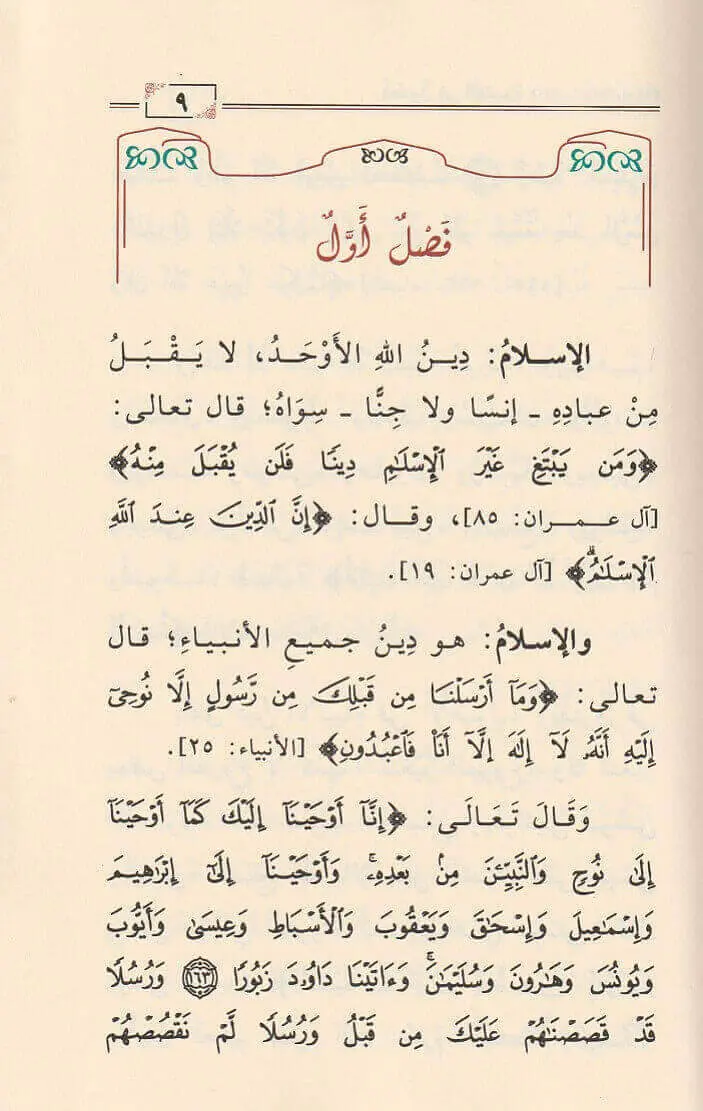 ٩
فَصْلٌ أَوَّلٌ
الإسلامُ: دِينُ اللهِ الأَوْحَدُ، لا يَقْبَلُ
مِنْ عبادِهِ ـ إنسًا ولا جِنًّا ـ سِوَاهُ؛ قال تعالى:
﴿وَمَن يَبْتَغِ غَيْرَ ٱلْإِسْلَٰمِ دِينًا فَلَن يُقْبَلَ مِنْهُ﴾
[آل عمران: ٨٥]، وقال: ﴿إِنَّ ٱلدِّينَ عِندَ ٱللَّهِ
ٱلْإِسْلَٰمُ ۗ﴾ [آل عمران: ١٩].
والإسلامُ: هو دِينُ جميعِ الأنبياءِ؛ قال
تعالى: ﴿وَمَآ أَرْسَلْنَا مِن قَبْلِكَ مِن رَّسُولٍ إِلَّا نُوحِىٓ
إِلَيْهِ أَنَّهُۥ لَآ إِلَٰهَ إِلَّآ أَنَا۠ فَٱعْبُدُونِ﴾ [الأنبياء: ٢٥].
وَقَالَ تَعَالَى: ﴿إِنَّآ أَوْحَيْنَآ إِلَيْكَ كَمَآ أَوْحَيْنَآ
إِلَىٰ نُوحٍ وَٱلنَّبِيِّـۧنَ مِنۢ بَعْدِهِۦ ۚ وَأَوْحَيْنَآ إِلَىٰٓ إِبْرَٰهِيمَ
وَإِسْمَٰعِيلَ وَإِسْحَٰقَ وَيَعْقُوبَ وَٱلْأَسْبَاطِ وَعِيسَىٰ وَأَيُّوبَ
وَيُونُسَ وَهَٰرُونَ وَسُلَيْمَٰنَ ۚ وَءَاتَيْنَا دَاوُۥدَ زَبُورًا ١٦٣ وَرُسُلًا
قَدْ قَصَصْنَٰهُمْ عَلَيْكَ مِن قَبْلُ وَرُسُلًا لَّمْ نَقْصُصْهُمْ